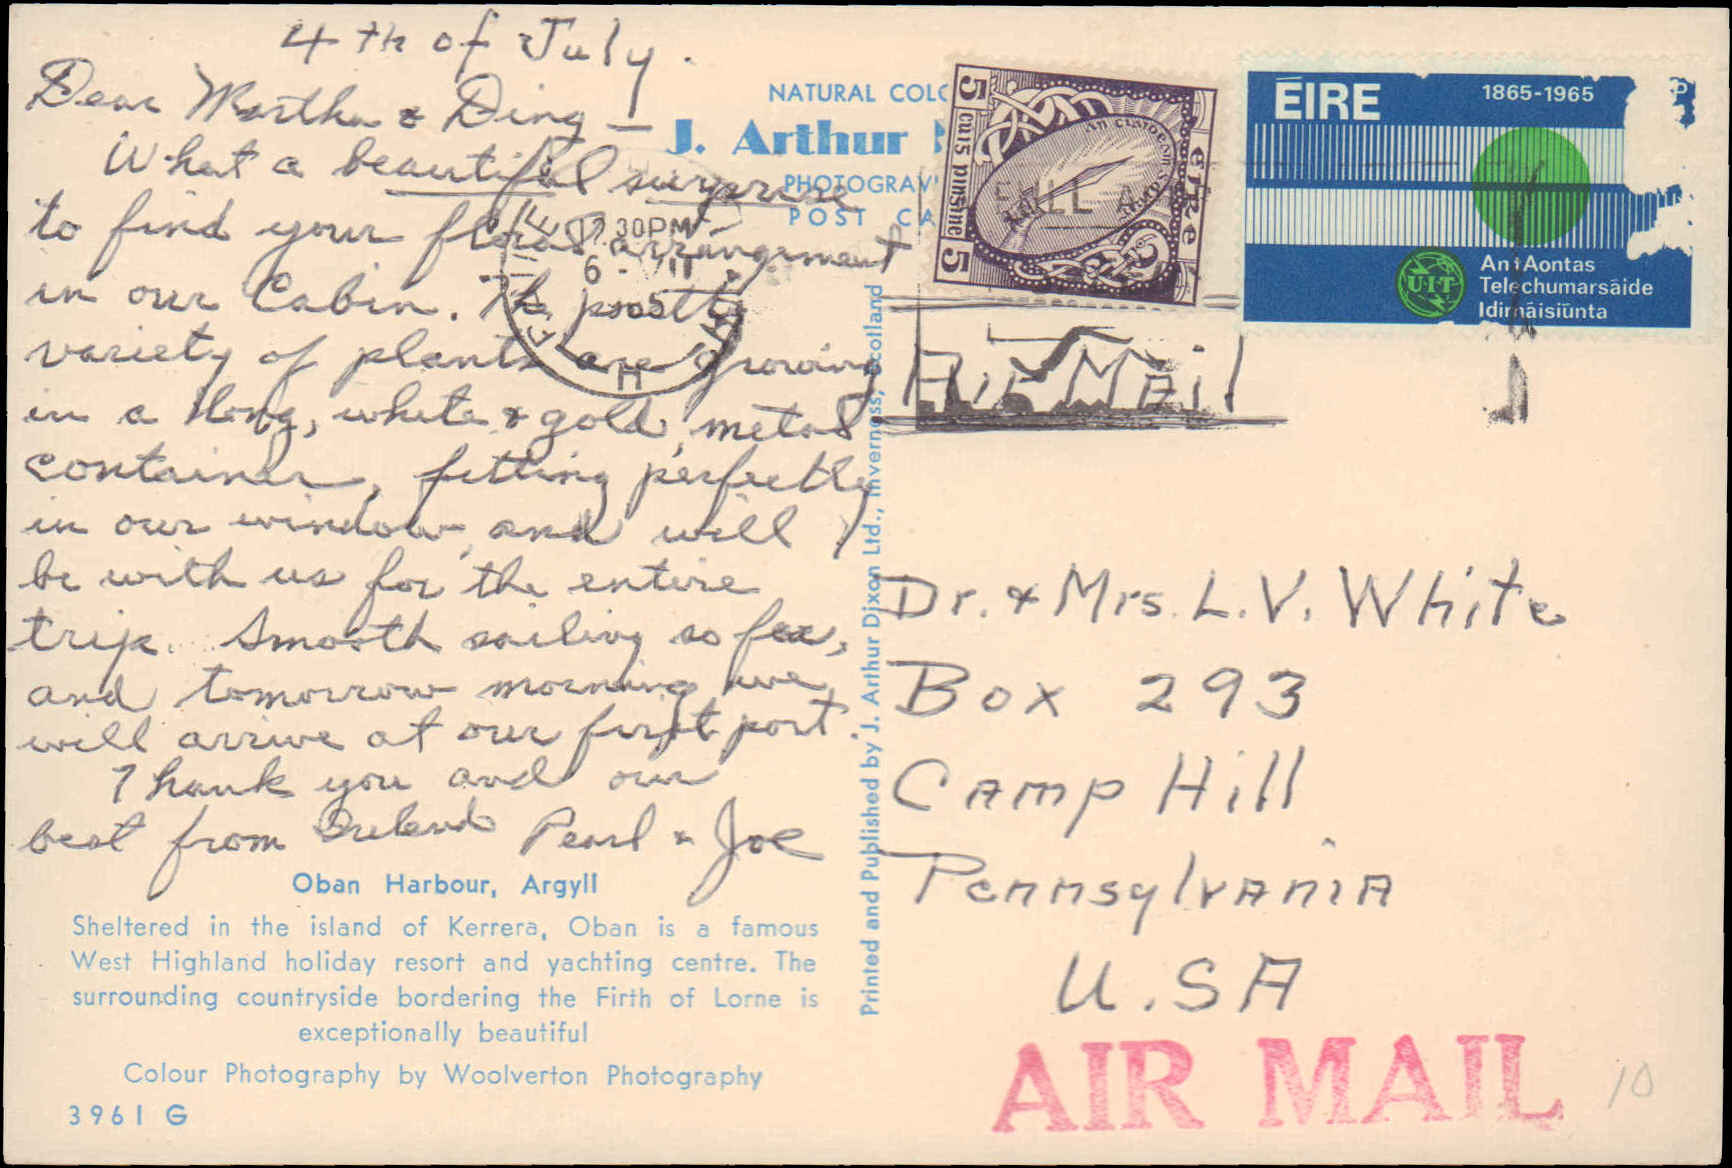 4th of July.
Dear Martha & Ding —
What a beautiful surprise
to find your floral arrangement
in our Cabin. The pretty
variety of plants are growing
in a long, white & gold, metal
container, fitting perfectly
in our window, and will
be with us for the entire
trip. Smooth sailing so far,
and tomorrow morning we
will arrive at our first port.
Thank you and our
best from Ireland Pearl & Joe
Oban Harbour, Argyll
Sheltered in the island of Kerrera, Oban is a famous
West Highland holiday resort and yachting centre. The
surrounding countryside bordering the Firth of Lorne is
exceptionally beautiful
Colour Photography by Woolverton Photography
3961 G
NATURAL COLO
J. Arthur
PHOTOGRAV
POST CA
7.30PM
6
Printed and Published by J. Arthur Dixon Ltd., Inverness, Scotland
5 cuis pinsine 5
eire
an claideam soluis
ÉIRE
1865-1965
P
UIT
An tAontas
Telechumarsáide
Idirnáisiúnta
Air Mail
Dr. & Mrs. L. V. White
Box 293
Camp Hill
Pennsylvania
U.SA
AIR MAIL
10